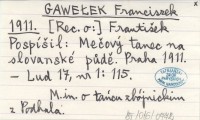 GAWEŁEK Franciszek
1911. [Rec. o:] František
Pospíšil: Mečový tanec na
slovanské půdě. Praha 1911.
— Lud 17, nr 1: 115.
M.in o tańcu zbójnickim
z Podhala.